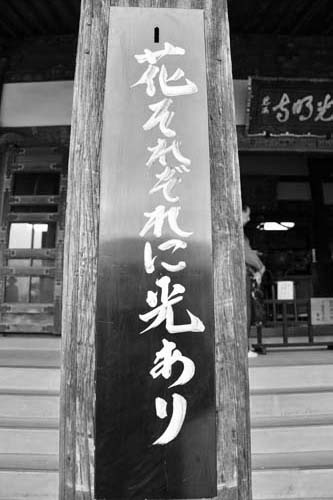 花それぞれに光あり
光明寺